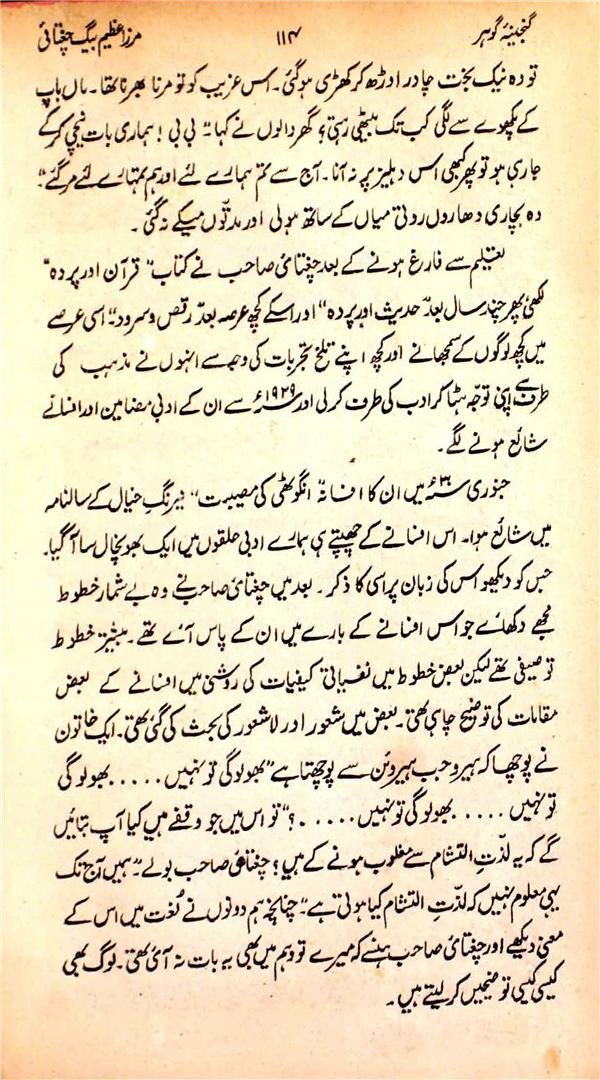 گنجینۂ گوہر ۱۱۴ مرزا عظیم بیگ چغتائی
تو وہ نیک بخت چادر اوڑھ کر کھڑی ہو گئی۔ اس غریب کو تو مرنا بھرنا تھا۔ ماں باپ
کے کھوے سے لگی کب تک بیٹھی رہتی؟ گھر والوں نے کہا "بی بی! ہماری بات نیچی کر کے
جا رہی ہو تو پھر کبھی اس دہلیز پر نہ آنا۔ آج سے تم ہمارے لئے اور ہم تمہارے لئے مر گئے"۔
وہ بچاری دھاروں روتی میاں کے ساتھ ہولی اور مدتوں میکے نہ گئی۔
تعلیم سے فارغ ہونے کے بعد چغتائی صاحب نے کتاب "قرآن اور پردہ"
لکھی پھر چند سال بعد "حدیث اور پردہ" اور اسکے کچھ عرصہ بعد "رقص و سرود"۔ اسی عرصے
میں کچھ لوگوں کے سمجھانے اور کچھ اپنے تلخ تجربات کی وجہ سے انہوں نے مذہب کی
طرف سے اپنی توجہ ہٹا کر ادب کی طرف کر لی اور ۱۹۲۹ء سے ان کے ادبی مضامین اور افسانے
شائع ہونے لگے۔
جنوری ۳۰ء میں ان کا افسانہ "انگوٹھی کی مصیبت" نیرنگِ خیال کے سالنامہ
میں شائع ہوا۔ اس افسانے کے چھپتے ہی ہمارے ادبی حلقوں میں ایک بھونچال سا آ گیا۔
جس کو دیکھو اس کی زبان پر اسی کا ذکر۔ بعد میں چغتائی صاحب نے وہ بے شمار خطوط
مجھے دکھائے جو اس افسانے کے بارے میں ان کے پاس آئے تھے۔ بیشتر خطوط
توصیفی تھے لیکن بعض خطوط میں نفسیاتی کیفیات کی روشنی میں افسانے کے بعض
مقامات کی توضیح چاہی تھی۔ بعض میں شعور اور لاشعور کی بحث کی گئی تھی۔ ایک خاتون
نے پوچھا کہ ہیرو جب ہیروئن سے پوچھتا ہے "بھولو گی تو نہیں ..... بھولو گی
تو نہیں ..... بھولو گی تو نہیں ..... ؟" تو اس میں جو وقفے ہیں کیا آپ بتائیں
گے کہ یہ لذتِ التشام سے مغلوب ہونے کے ہیں؟ چغتائی صاحب بولے "ہمیں آج تک
یہی معلوم نہیں کہ لذتِ التشام کیا ہوتی ہے"۔ چنانچہ ہم دونوں نے لُغت میں اس کے
معنی دیکھے اور چغتائی صاحب ہنسے کہ میرے تو وہم میں بھی یہ بات نہ آئی تھی۔ لوگ بھی
کیسی کیسی توضیحیں کر لیتے ہیں۔